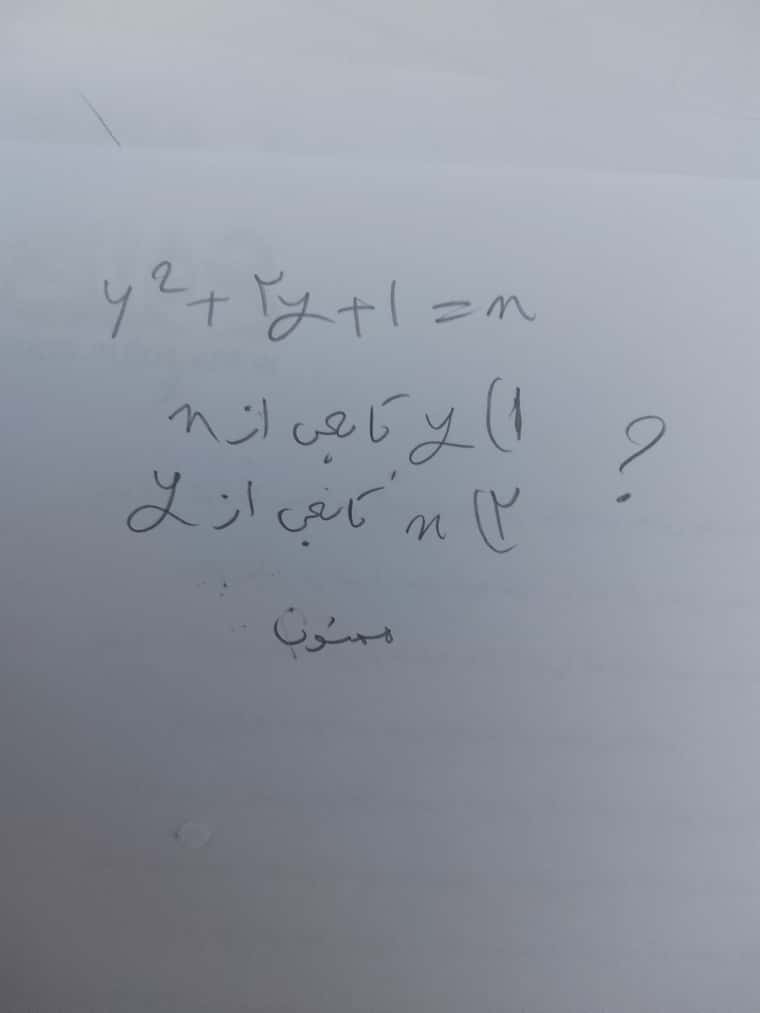 y² + ۲y + ۱ = n
۱) y تابعی از n
۲) n تابعی از y
؟
ممنون